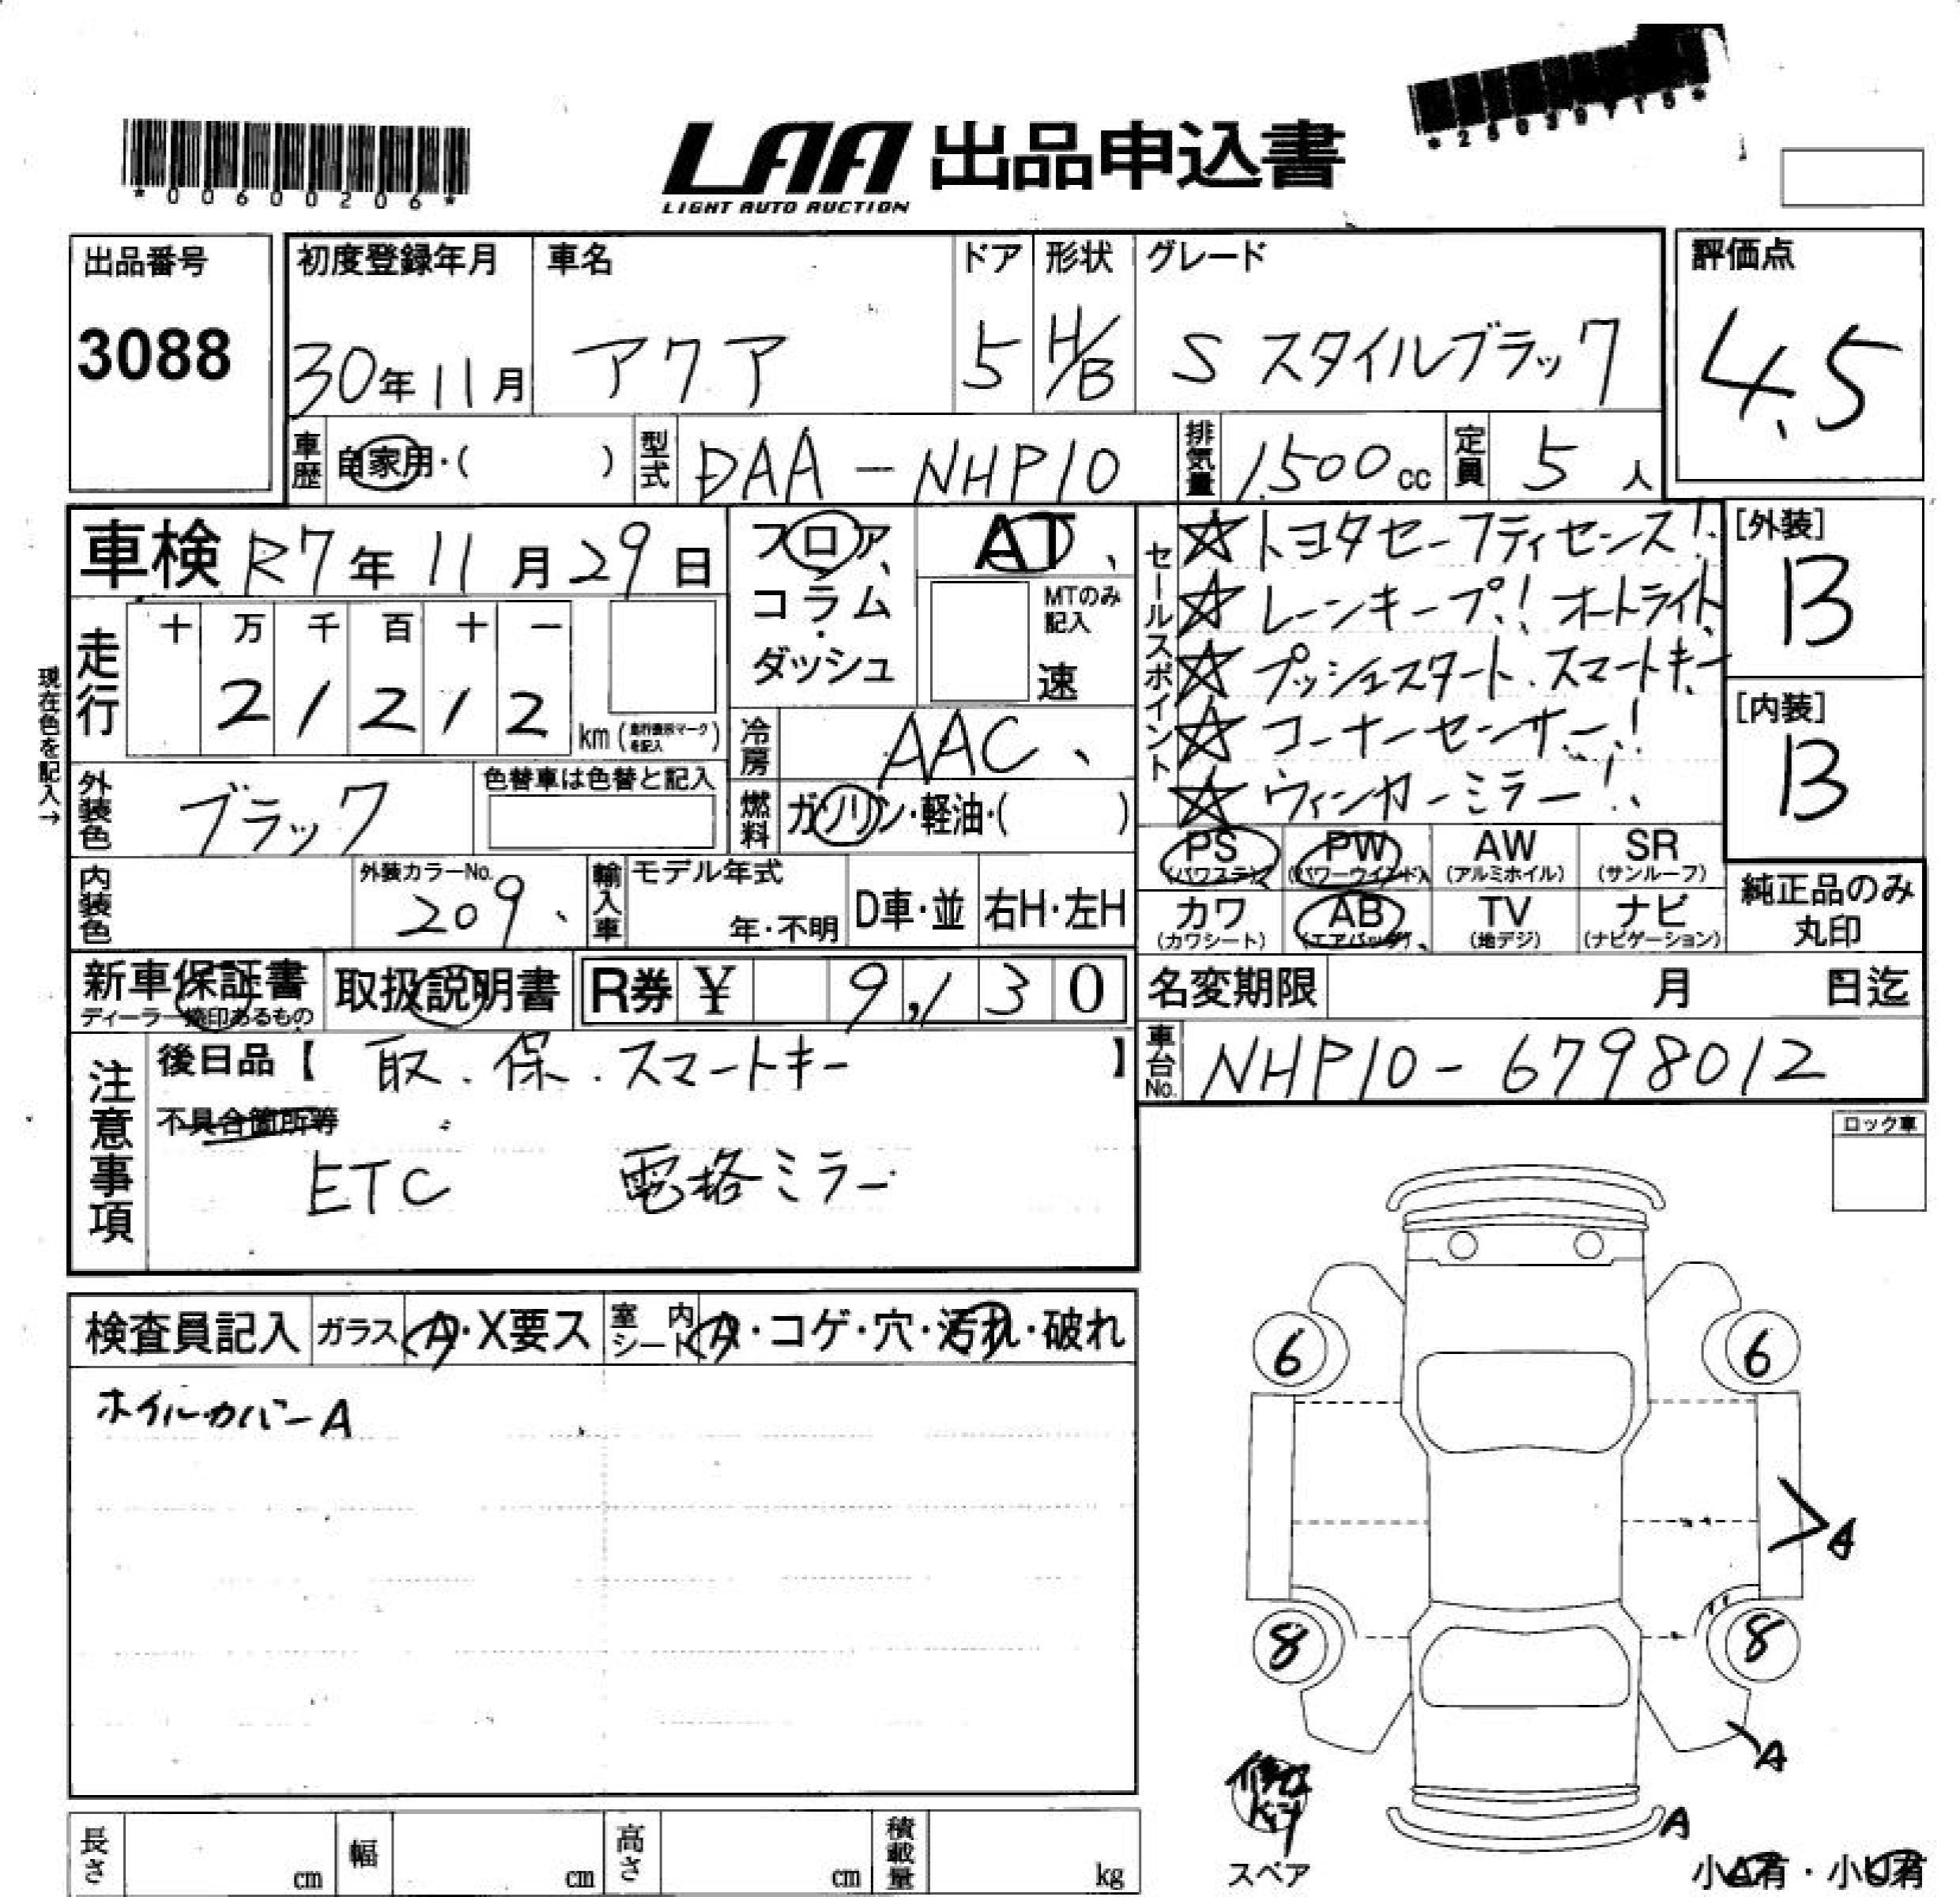 *00600206*
LAA 出品申込書
LIGHT AUTO AUCTION
*28039715*
出品番号
3088
初度登録年月
30年11月
車名
アクア
ドア
5
形状
H/B
グレード
S スタイルブラック
評価点
4.5
車歴 自家用・( )
型式 DAA-NHP10
排気量 1,500cc
定員 5人
車検 R7年11月29日
フロア、コラム・ダッシュ
AT、
MTのみ記入
速
セールスポイント
☆トヨタセーフティセンス!
☆レーンキープ!オートライト
☆プッシュスタート.スマートキー
☆コーナーセンサー!
☆ウィンカーミラー!
[外装]
B
[内装]
B
現在色を記入→
走行
十 万 千 百 十 一
2 1 2 1 2 km
冷房 AAC、
燃料 ガソリン・軽油・( )
外装色 ブラック
色替車は色替と記入
内装色
外装カラーNo.
209、
輸入車
モデル年式
年・不明
D車・並
右H・左H
PS (パワステ)
PW (パワーウインド)
AW (アルミホイル)
SR (サンルーフ)
カワ (カワシート)
AB (エアバッグ)
TV (地デジ)
ナビ (ナビゲーション)
純正品のみ丸印
新車保証書
ディーラー捺印あるもの
取扱説明書
R券 ¥ 9,130
名変期限 月 日迄
車台No. NHP10-6798012
注意事項
後日品【 取.保.スマートキー 】
不具合箇所等
ETC 電格ミラー
ロック車
検査員記入
ガラス A・X要ス
室内シート A・コゲ・穴・汚れ・破れ
ホイルカバーA
6 6
A
8 8
A
A
スペア
小A有・小U有
長さ cm
幅 cm
高さ cm
積載量 kg